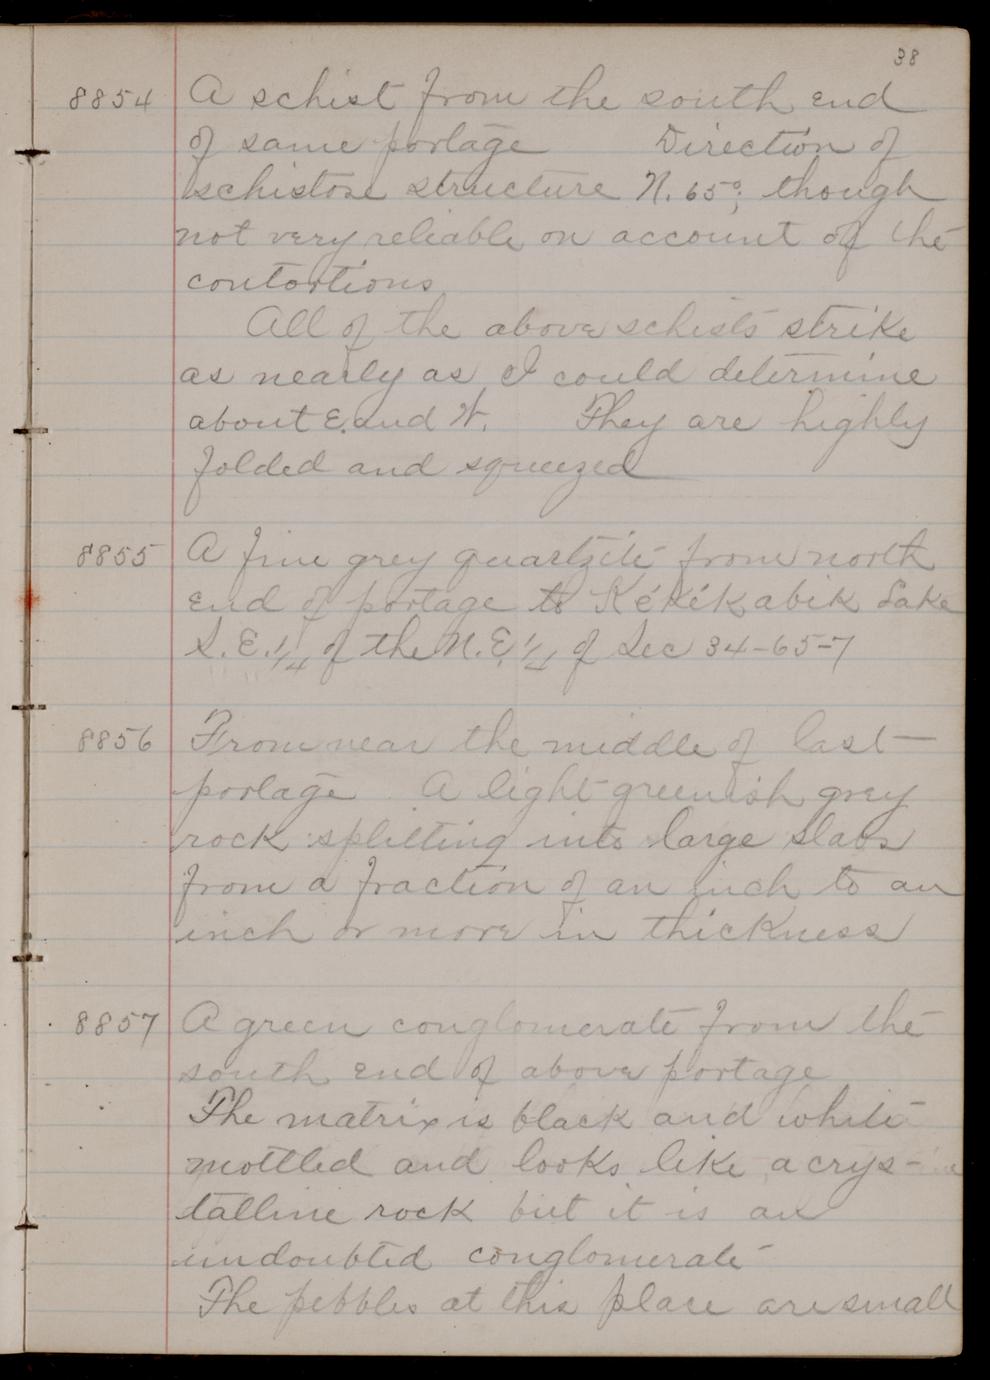 38
8854 A schist from the south end
of same portage Direction of
schistose structure N. 65°; though
not very reliable on account of the
contortions.
All of the above schists strike
as nearly as I could determine
about E. and W. They are highly
folded and squeezed
8855 A fine grey quartzite from north
end of portage to Kékékabik Lake
S.E. 1/4 of the N.E. 1/4 of Sec 34-65-7
8856 From near the middle of last
portage. A light greenish grey
rock splitting into large slabs
from a fraction of an inch to an
inch or more in thickness
8857 A green conglomerate from the
south end of above portage
The matrix is black and white
mottled and looks like a crys-
talline rock but it is an
undoubted conglomerate
The pebbles at this place are small